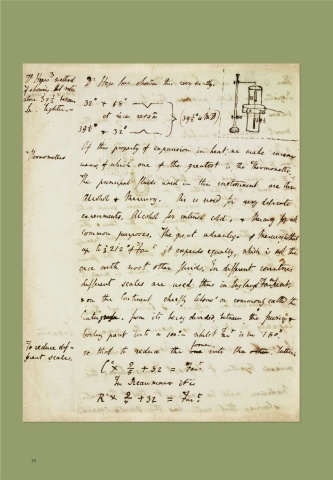 Dr Hope's method
of showing that water
at
Dr Hope has shown this very neatly.
32° + 68°
et vice versâ
39½° + 32°
Thermometers
Of this property of expansion in heat we make in many
uses of which one of the greatest is the Thermometer.
The principal fluids used in this instrument are Air
Alcohol & Mercury. Air is used for very delicate
experiments. Alcohol for intense cold. & Mercury for all
common purposes. The great advantage of Mercury is that
up to 212° of Fart it expands equally, which is not the
case with most other fluids. In different countries
different scales are used, thus in England Farht
& on the Continent chiefly or commonly called the
Centigrade from its being divided between the freezing &
boiling point into a 100° whilst Fart is in 180°
To reduce dif-
ferant scales.
so that to reduce the former into the latter
C° × 9/5 + 32 = Far°
In Reaumur it is
R° × 9/4 + 32 = Far°